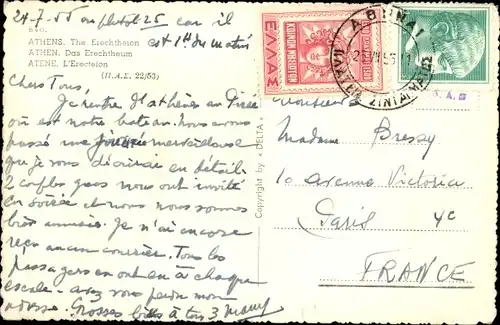 24-7.55 ou plutôt 25 car il
est 1h du matin
ATHENS. The Erechtheion
ATHEN. Das Erechtheum
ATENE. L'Erecteion
(Π.Α.Σ. 22/53)
Chers Tous,
Je rentre d'Athènes au Pirée
où est notre bateau. Nous avons
passé une journée merveilleuse
que je vous décrirai en détail.
2 couples grecs nous ont invité
en soirée et nous nous sommes
bien amusés. Je n'ai encore
reçu aucun courrier. Tous les
passagers en ont eu à chaque
escale - avez vous perdu mon
adresse. Grosses bises à tous 3
Copyright by «DELTA»
ΕΛΛΑΣ
ΑΘΗΝΑΙ
Monsieur
Madame Bressy
10 avenue Victoria
Paris 4e
FRANCE